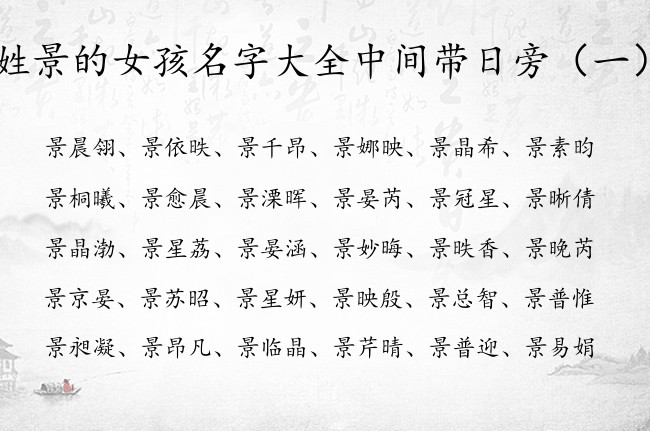 姓景的女孩名字大全中间带日旁（一）
景晨翎、景依昳、景千昂、景娜映、景晶希、景素昀
景桐曦、景愈晨、景溧晖、景晏芮、景冠星、景晰倩
景晶渤、景星荔、景晏涵、景妙晦、景昳香、景晚芮
景京晏、景苏昭、景星妍、景映殷、景总智、景普惟
景昶凝、景昂凡、景临晶、景芹晴、景普迎、景易娟